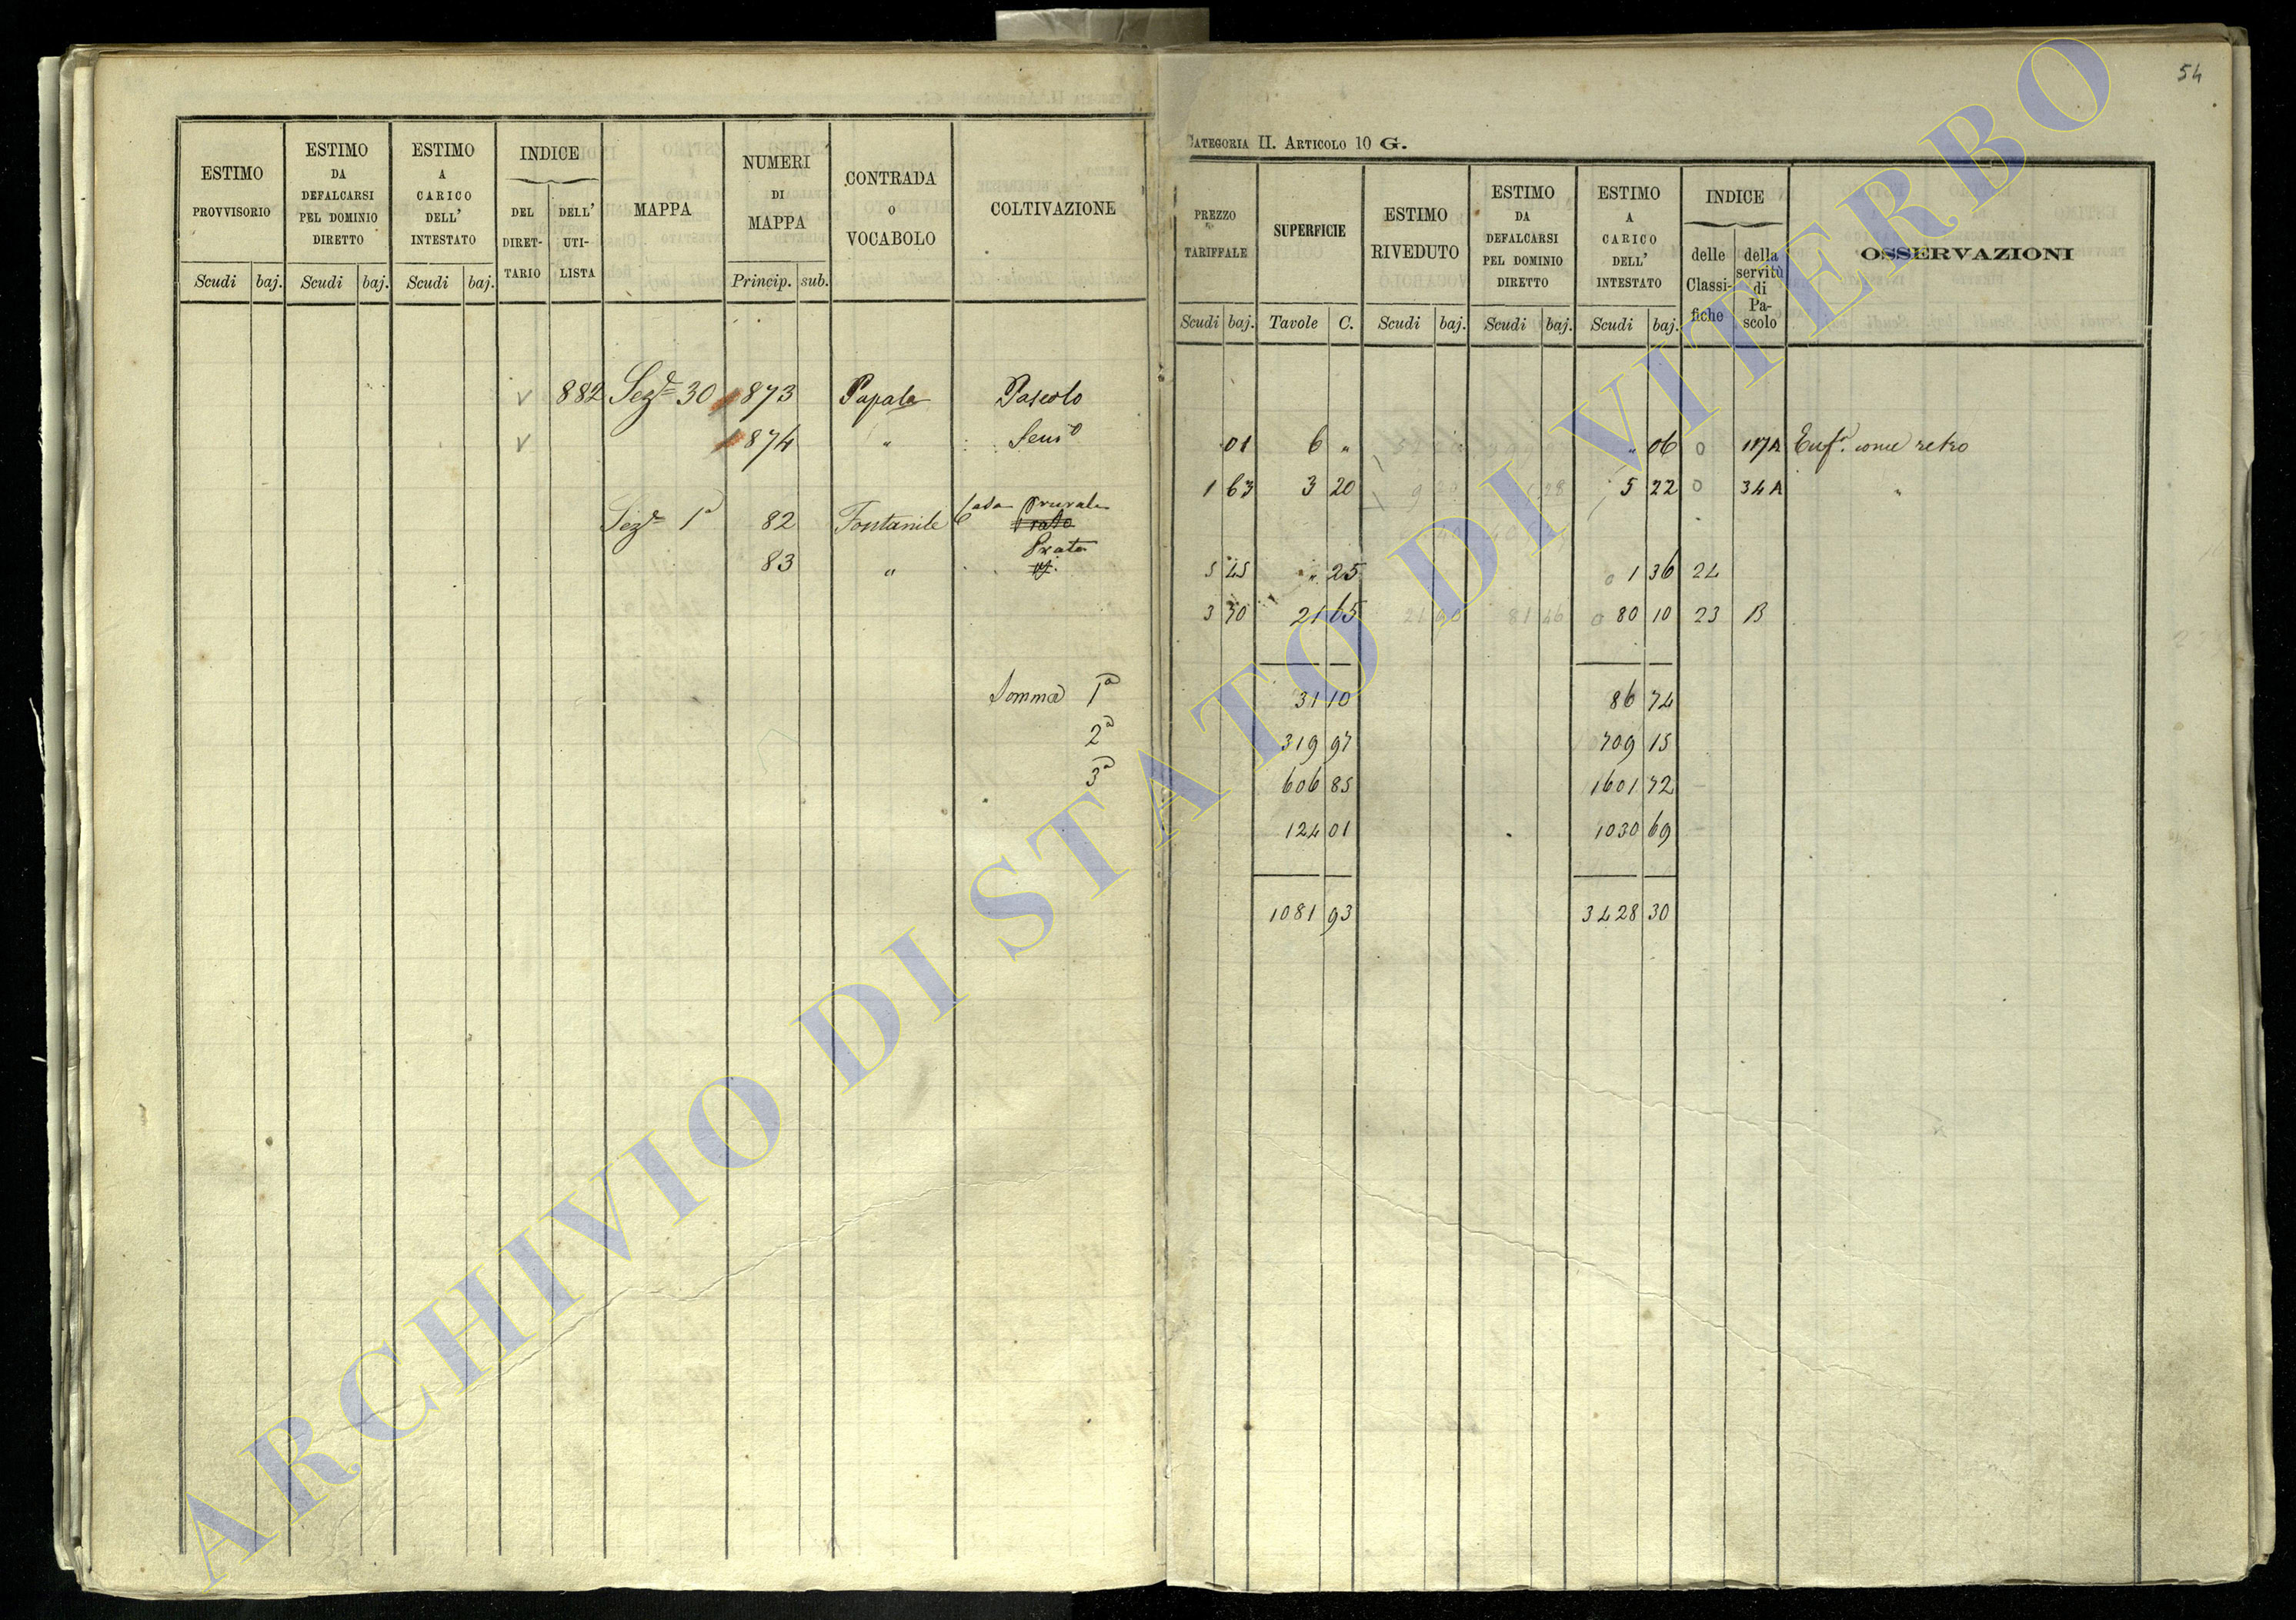 54
CATEGORIA II. ARTICOLO 10 G.
ESTIMO PROVVISORIO Scudi baj.
ESTIMO DA DEFALCARSI PEL DOMINIO DIRETTO Scudi baj.
ESTIMO A CARICO DELL' INTESTATO Scudi baj.
INDICE DEL DIRET-TARIO DELL' UTI-LISTA
MAPPA
NUMERI DI MAPPA Princip. sub.
CONTRADA O VOCABOLO
COLTIVAZIONE
882 Sez.e 30 873 Papala Pascolo
874 " Sem.o
Sez.e 1a 82 Fontanile Casa rurale Prato
83 " Prato
Somma 1a
2a
3a
PREZZO TARIFFALE Scudi baj.
SUPERFICIE Tavole C.
ESTIMO RIVEDUTO Scudi baj.
ESTIMO DA DEFALCARSI PEL DOMINIO DIRETTO Scudi baj.
ESTIMO A CARICO DELL' INTESTATO Scudi baj.
INDICE delle Classi-fiche della servitù di Pa-scolo
OSSERVAZIONI
01 6 " " 06 0 117A Enf.a come retro
1 63 3 20 5 22 0 34A "
5 45 " 25 1 36 24
3 70 21 65 80 10 23 B
31 10 86 74
319 97 709 15
606 85 1601 72
124 01 1030 69
1081 93 3428 30
ARCHIVIO DI STATO DI VITERBO